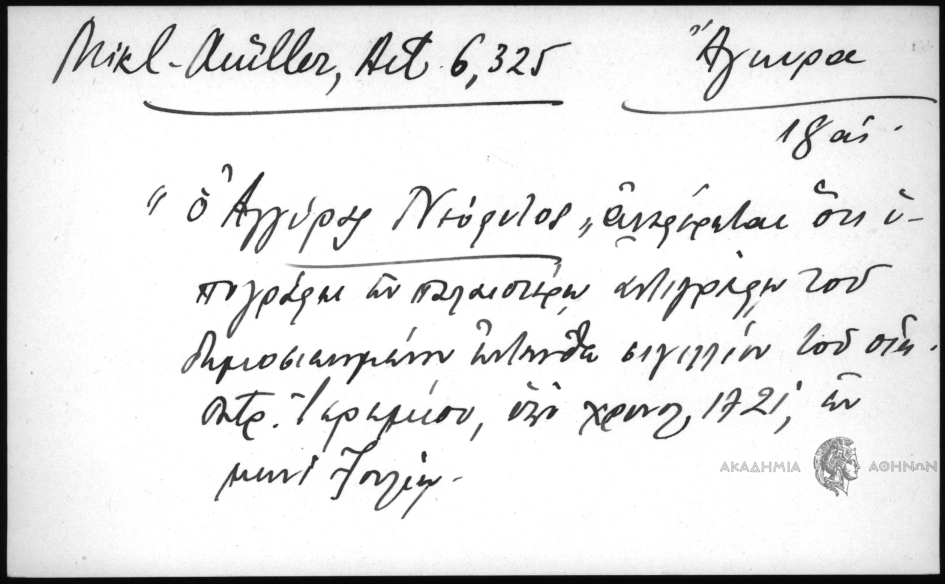 Mikl-Müller, Act 6,325
Ἄγκυρα
18 αἰ.
"ὁ Ἀγγύρας Νεόφυτος" ἀναφέρεται ὅτι ὑ-
πογράφει ἐν παλαιοτέρῳ ἀντιγράφῳ τοῦ
δημοσιευομένου ἐνταῦθα σιγιλλίου τοῦ οἰκ.
πατρ. Ἱερεμίου, ὑπὸ χρονολ. 1721, ἐν
μηνὶ Ἰουλίῳ.
ΑΚΑΔΗΜΙΑ ΑΘΗΝΩΝ